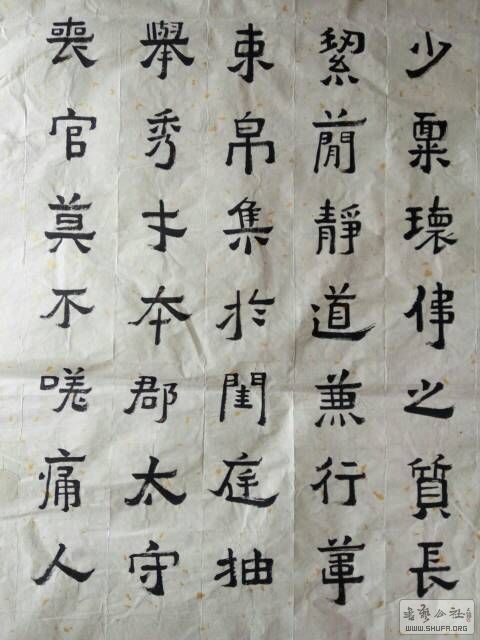 少稟瓌偉之質長
絜簡靜道兼行葦
束帛集於閨庭抽
舉秀才本郡太守
喪官莫不嗟痛人
WWW.SHUFA.ORG